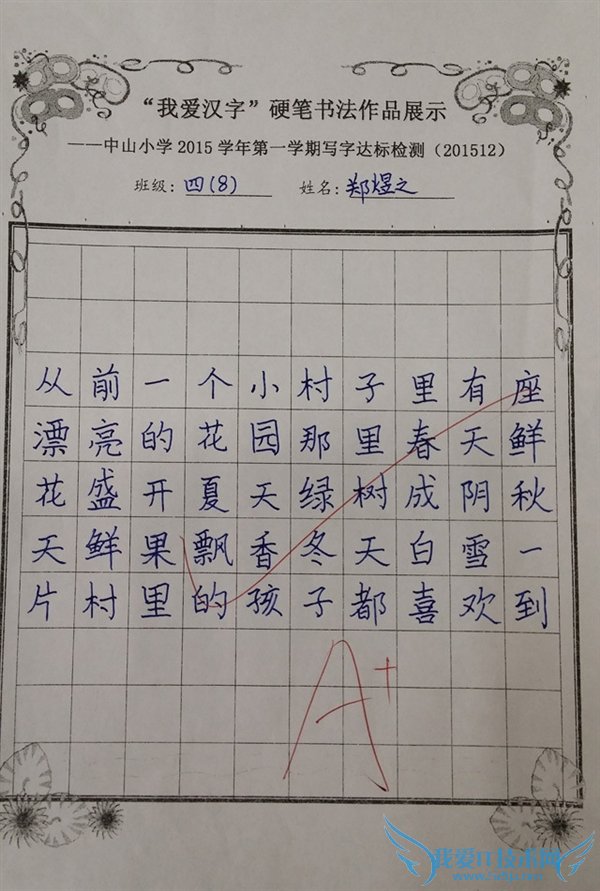 “我爱汉字”硬笔书法作品展示
——中山小学2015学年第一学期写字达标检测（201512）
班级：四(8) 姓名：郑煜之
从前一个小村子里有座
漂亮的花园那里春天鲜
花盛开夏天绿树成阴秋
天鲜果飘香冬天白雪一
片村里的孩子都喜欢到
A+
我爱IT技术网